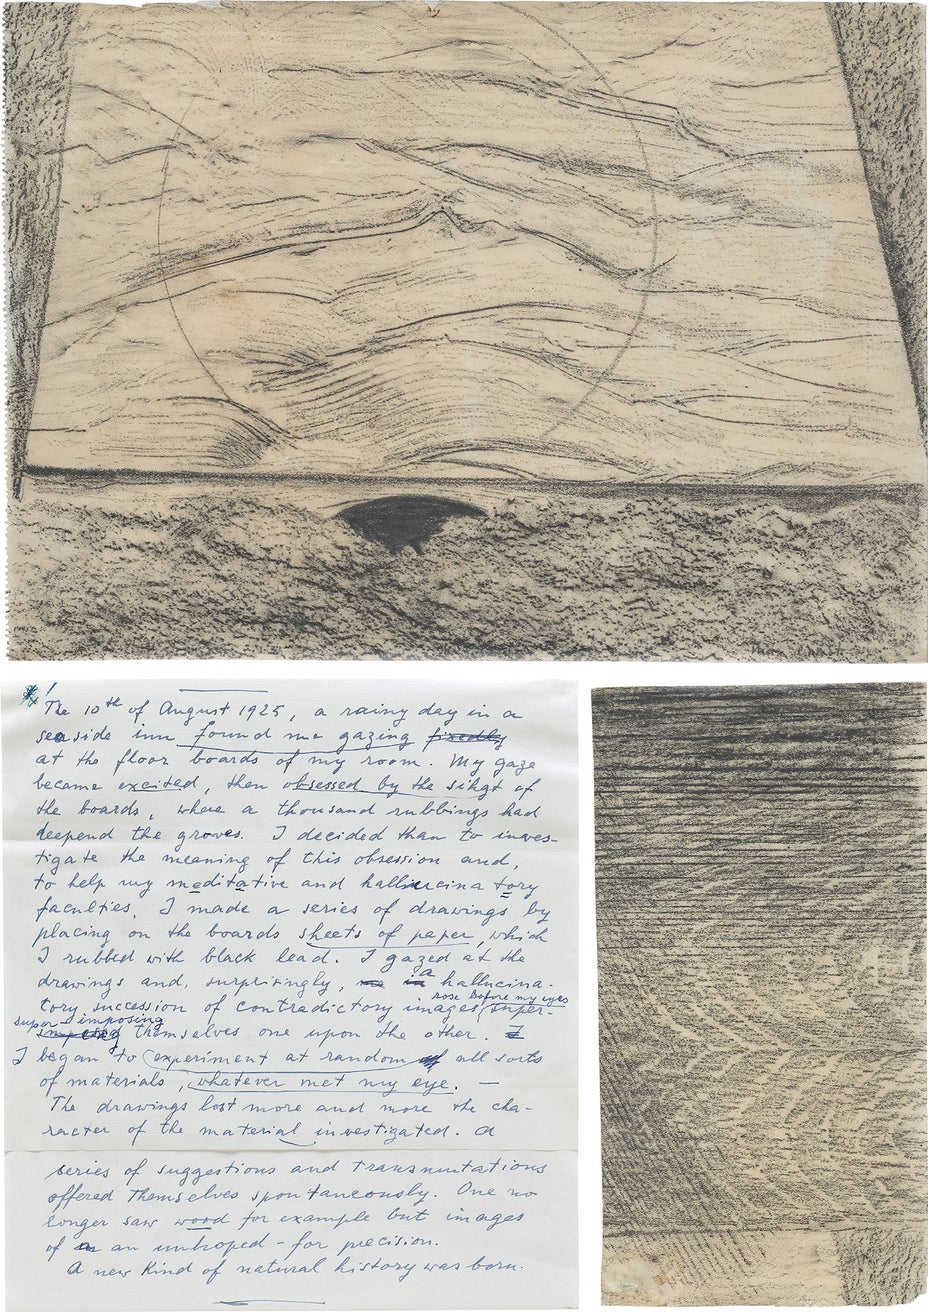 The 10th of August 1925, a rainy day in a
seaside inn found me gazing fixedly
at the floor boards of my room. My gaze
became excited, then obsessed by the sihgt of
the boards, where a thousand rubbings had
deepend the groves. I decided than to inves-
tigate the meaning of this obsession and,
to help my meditative and hallucinatory
faculties, I made a series of drawings by
placing on the boards sheets of paper, which
I rubbed with black lead. I gazed at the
drawings and, surprisingly, a hallucina-
tory succession of contradictory images rose before my eyes super-
super-imposing themselves one upon the other.
I began to experiment at random all sorts
of materials, whatever met my eye. —
The drawings lost more and more the cha-
racter of the material investigated. A
series of suggestions and transmutations
offered themselves spontaneously. One no
longer saw wood for example but images
of an unhoped-for precision.
A new kind of natural history was born.